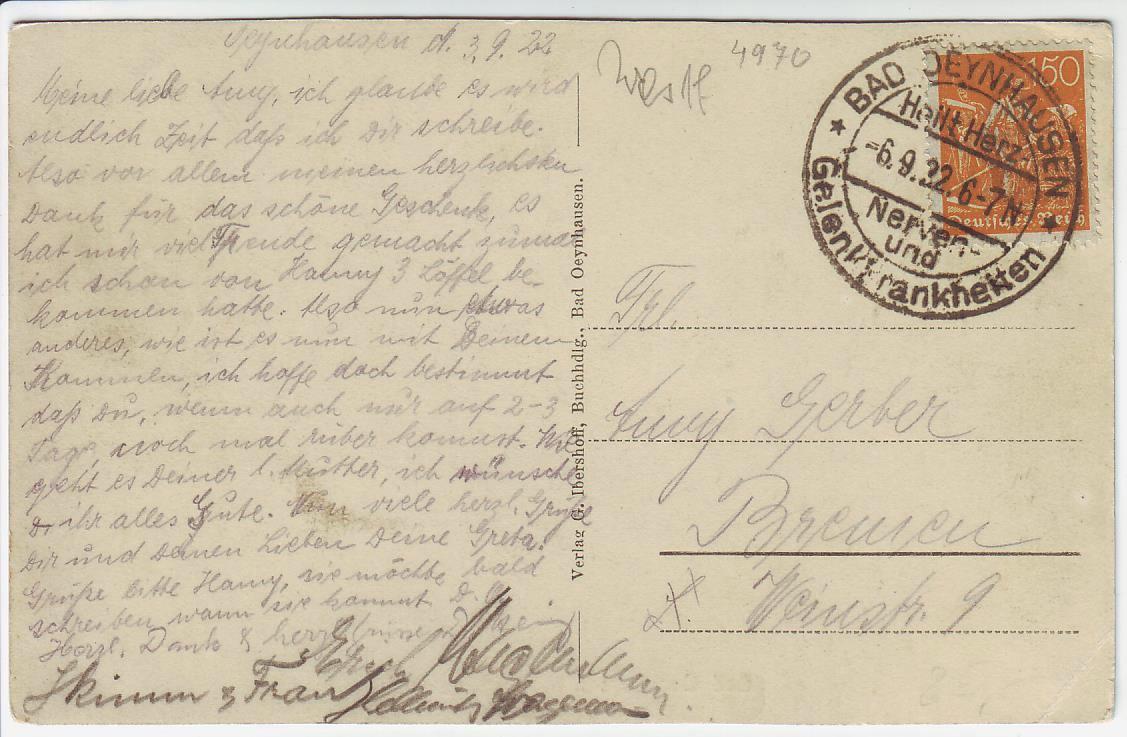 Oeynhausen d. 3.9.22
Meine liebe Amy, ich glaube es wird
endlich Zeit daß ich Dir schreibe.
Also vor allem meinen herzlichsten
Dank für das schöne Geschenk, es
hat mir viel Freude gemacht zumal
ich schon von Hanny 3 Löffel be-
kommen hatte. Also nun etwas
anderes, wie ist es nun mit Deinem
Kommen, ich hoffe doch bestimmt
daß Du, wenn auch nur auf 2-3
Tage noch mal rüber kommst. Wie
geht es Deiner l. Mutter, ich wünsche
ihr alles Gute. Nun viele herzl. Grüße
Dir und Deinen Lieben Deine Greta.
Grüße bitte Hanny, sie möchte bald
schreiben wann sie kommt
Herzl. Dank & herzl.
& Frau
Verlag G. Ibershoff, Buchhdlg., Bad Oeynhausen.
Westf
4970
150
Deutsches Reich
BAD OEYNHAUSEN
Heilt Herz-
-6.9.22.6-7 N
Nerven-
und
Gelenkkrankheiten
Frl.
Amy Gerber
Bremen
Weinstr. 9